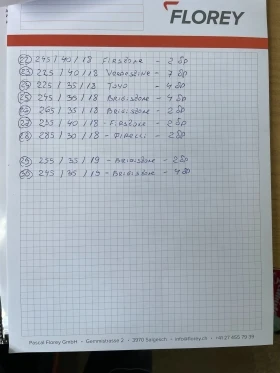 FLOREY
22 245/40/18 FIRSTONE - 2 SP
23 225/40/18 VREDESTINE - 3 SP
24 225/35/18 TOYO - 4 SP
25 245/35/18 BRIGISTONE - 4 SP
26 265/35/18 BRIGISTONE - 2 SP
27 235/40/18 - FIRSTONE - 2 SP
28 285/30/18 - PIRELLI - 2 SP
29 255/35/19 - BRIGISTONE - 2 SP
30 245/35/19 - BRIGISTONE - 4 SP
Pascal Florey GmbH • Gemmistrasse 2 • 3970 Salgesch • info@florey.ch • +41 27 455 79 39